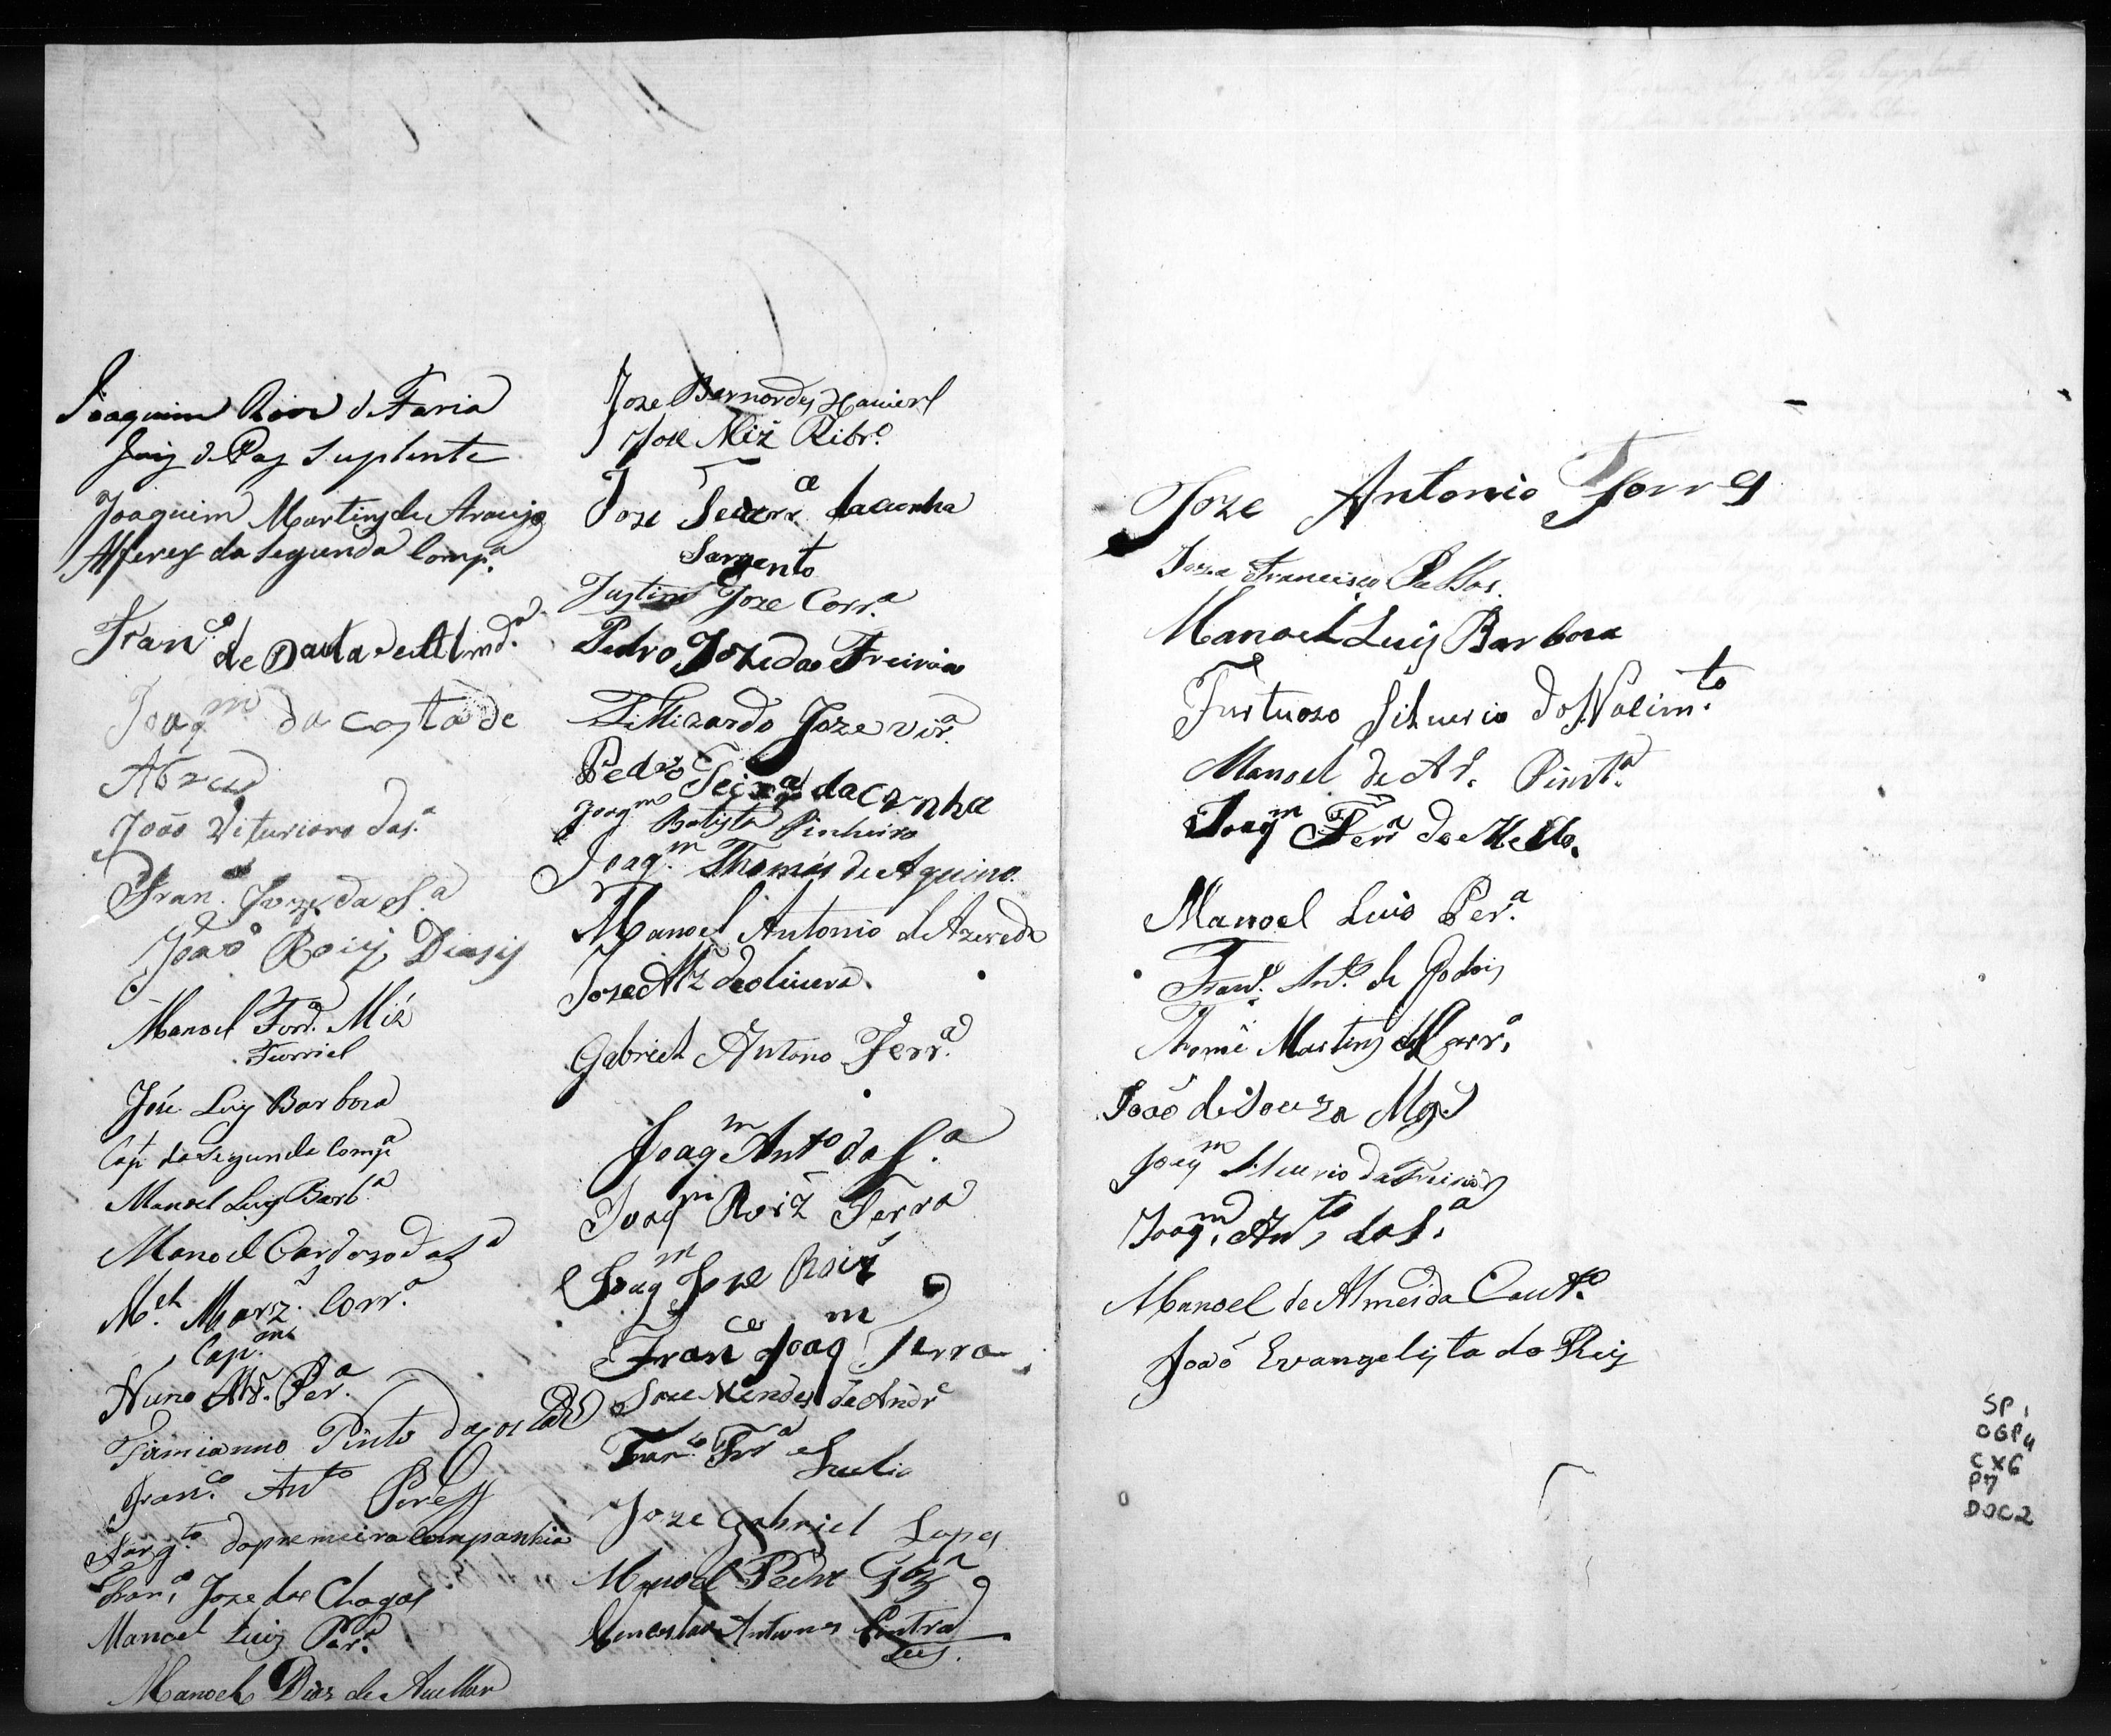 Joaquim Roiz de Faria
Juiz de Paz Suplente
Joaquim Martins de Araujo
Alferes da Segunda Comp.a
Fran.co de Paula de Almd.a
Joaq.m da Costa de
Abreu
João Vituriano da S.a
Fran.co Joze da S.a
João Roiz Diasis
Manoel Ferd.a Miz
Furriel
José Luiz Barboza
Cap. da Segunda Comp.a
Manoel Luiz Barb.a
Manoel Cardozo da S.a
M.el Marz. Corr.a
Cap.m
Nuno Alz. Per.a
Damianno Pinto
Fran.co Ant.o Peres
Sarg.to da premeira Companhia
Fran.co Joze das Chagas
Manoel Luiz Per.a
Manoel Dias de Avellar
Joze Bernardes Xavier
José Miz Ribr.o
Joze Teixr.a da Cunha
Sargento
Justino Joze Corr.a
Pedro Joze da Freiria
Joze Vir.a
Pedro Teixr.a da Cunha
Joaq.m Batista Pinheiro
Joaq.m Thomás de Aquino
Manoel Antonio d Azevedo
Joze Alz de Olivera
Gabriel Antono Ferr.a
Joaq.m Ant.o da S.a
Joaq.m Roiz Ferra
Joaq.m Joze Roiz
Fran.co Joaq.m Serra
Joze Mendes de Andr.e
Fran.co Frr.a
Joze Gabriel Lopes
Manoel Pedro
Antunes
Joze Antonio Torres
Joze Francisco
Manoel Luiz Barboza
Furtuozo Silverio do Nacim.to
Manoel de Ar. Piment.a
Joaq.m Ferr.a de Mello
Manoel Luis Per.a
Fran.co Ant.o de Godois
Thomé Martins
João de Souza Mg.
Joaq.m Silverio da Freiria
Joaq.m Ant.o da S.a
Manoel de Almeida Cout.o
João Evangelista do Reis
SP 1
OGP4
CX6
P7
DOC2